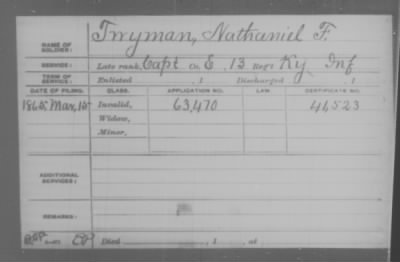 Twyman, Nathaniel F.
NAME OF SOLDIER:
SERVICE: Late rank, Capt Co. E, 13 Reg't Ky Inf
TERM OF SERVICE: Enlisted , 1 Discharged , 1
DATE OF FILING. CLASS. APPLICATION NO. LAW. CERTIFICATE NO.
1865, Mar, 15 Invalid, 63,470 41,523
Widow,
Minor,
ADDITIONAL SERVICES:
REMARKS:
Died , 1 , at